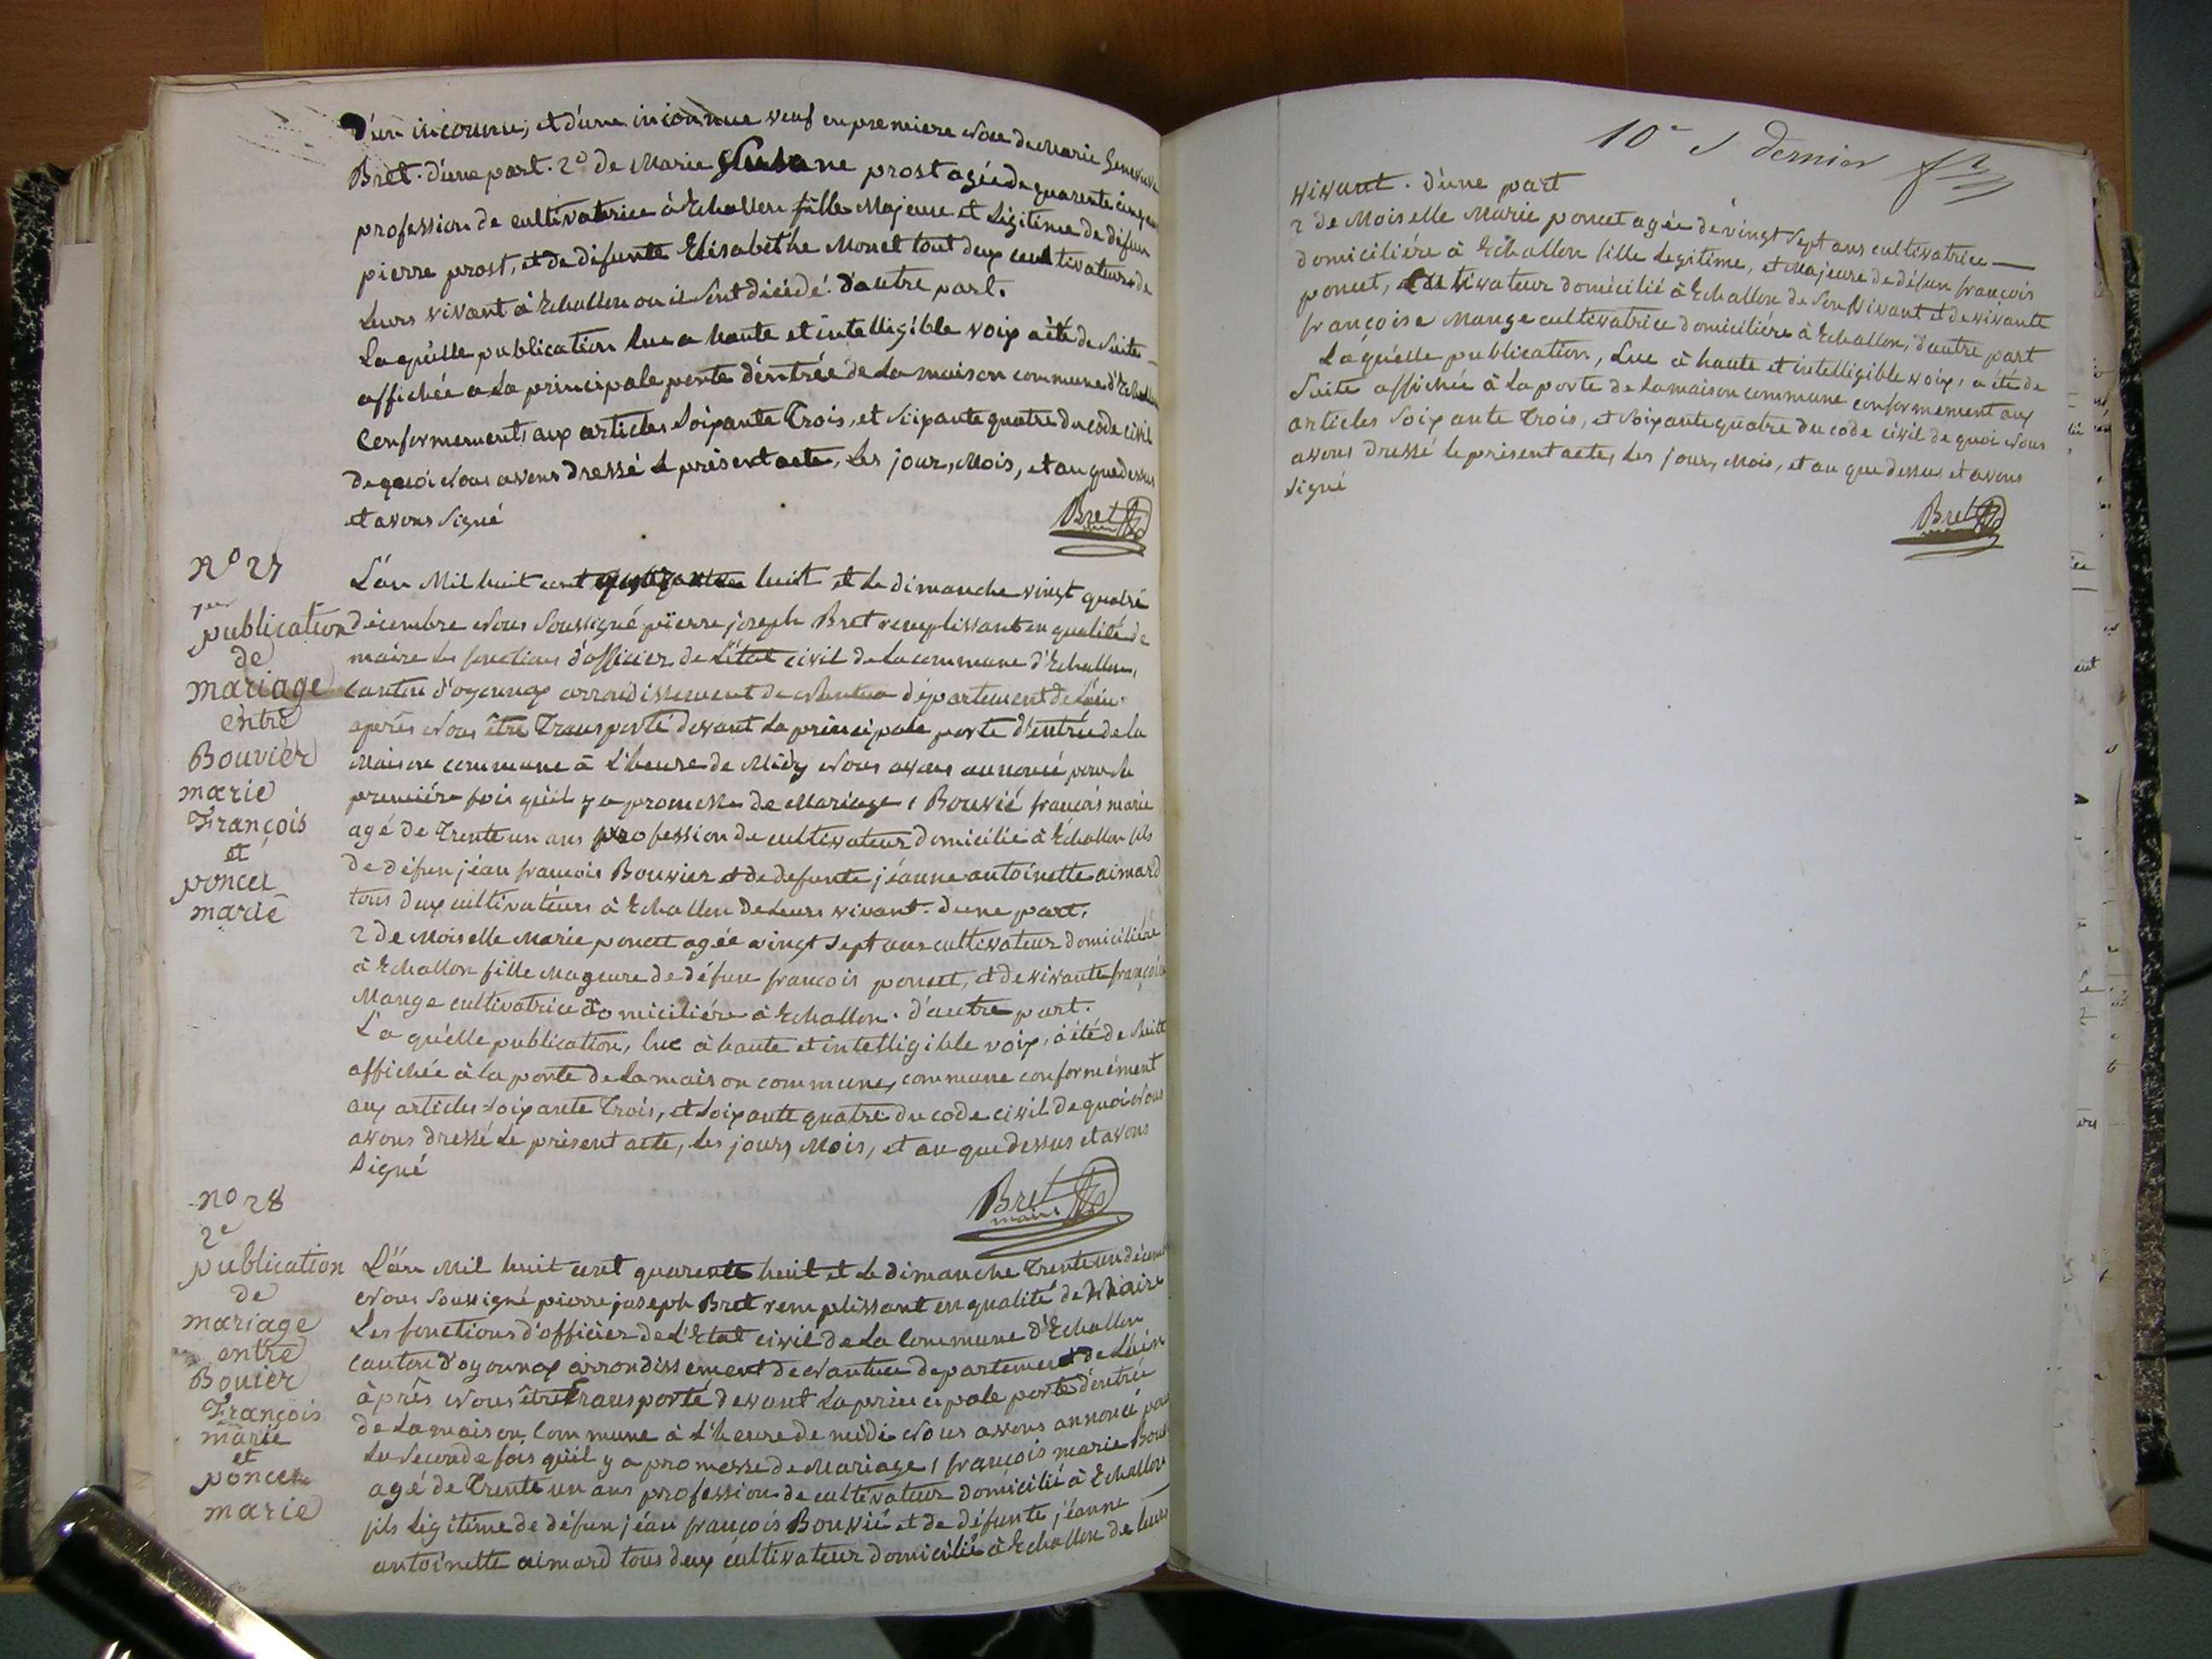 D'un inconnu, et d'une inconnue veuf en premiere Noce de Marie Genevieve
Bret. d'une part. 2º de Marie Susane prost agée de quarente cinq ans
profession de cultivatrice à Echallon fille Majeure et Légitime de défun
pierre prost, et de difunte Elisabèthe Monet tout deux cultivateurs de
Leurs vivant à Echallon ou il sont décédé. d'autre part.
Laqu'elle publication lue a haute et intelligible voix a été de Suite
affichée a La principale porte d'entrée de La maison commune d'Echallon
Conformement aux articles Soixante Trois, et Soixante quatre du code civil
De quoi Nous avons dressé Le présent acte, Les jour, Mois, et an que dessus
et avons Signé
Bret
nº 27
1ere
publication
de
mariage
entre
Bouvier
marie
François
et
poncet
marie
L'an Mil huit cent quarante huit et Le dimanche vingt quatre
décembre Nous Soussigné pierre joseph Bret remplissant en qualité de
maire Les fonctions d'officier de L'état civil de La commune d'Echallon,
Canton d'oyonnax arrondissement de Nantua département de L'ain
après Nous être Transporté devant La principale porte d'entrée de la
Maison commune à L'heure de Midy Nous avons annoncé pour la
première fois qu'il y a promesse de Mariage 1 Bouvié françois marie
agé de Trente un ans profession de cultivateur domicilié à Echallon fils
de défun jéan francois Bouvier et de defunte jéanne antoinette aimard
tous deux cultivateurs à Echallon de Leurs vivant. d'une part.
2 de Moiselle Marie poncet agée vingt Sept ans cultivateur domiciliére
à Echallon fille Mageure de défun francois poncet, et de vivante françoise
Mange cultivatrice domiciliére à Echallon. d'autre part.
Laqu'elle publication, lue à haute et intelligible voix, à été de Suitte
affichée à la porte de La maison commune, commune conformément
aux articles Soixante Trois, et Soixante quatre du code civil de quoi Nous
avons dressé Le présent acte, Les jours, Mois, et an que dessus et avons
Signé
Bret
maire
nº 28
2e
publication
de
mariage
entre
Bouier
François
marie
et
poncet
marie
L'an Mil huit cent quarente huit et Le dimanche Trente un décembre
Nous Soussigné pierre joseph Bret remplissant en qualité de Maire
Les fonctions d'officier de L'Etat civil de La Commune d'Echallon
Canton d'oyonnax arrondissement de Nantua departement de L'ain
àprês Nous être Transporté devant La principale porte d'entrée
de La maison Commune à L'heure de midi Nous avons annoncé pour
La Seconde fois qu'il y a promesse de Mariage 1 françois marie Bouvié
agé de Trente un ans profession de cultivateur domicilié à Echallon
fils Légitime de défun jéan françois Bouvié et de défunte jéanne
antoinette aimard tous deux cultivateur domicilié à Echallon de leurs
10e et dernier
vivant. d'une part
2 de Moiselle Marie poncet agée de vingt Sept ans cultivatrice
domiciliére à Echallon fille Legitime, et Majeure de défun françois
poncet, cultivateur domicilié à Echallon de Son vivant et de vivante
françoise Mange cultivatrice domiciliére à Echallon, d'autre part
Laqu'elle publication, Lue à haute et intelligible voix, a été de
Suite affichée à La porte de La maison commune conformement aux
articles Soixante Trois, et Soixante quatre du code civil de quoi Nous
avons dressé le présent acte, Les jour, Mois, et an que dessus et avons
signé
Bret